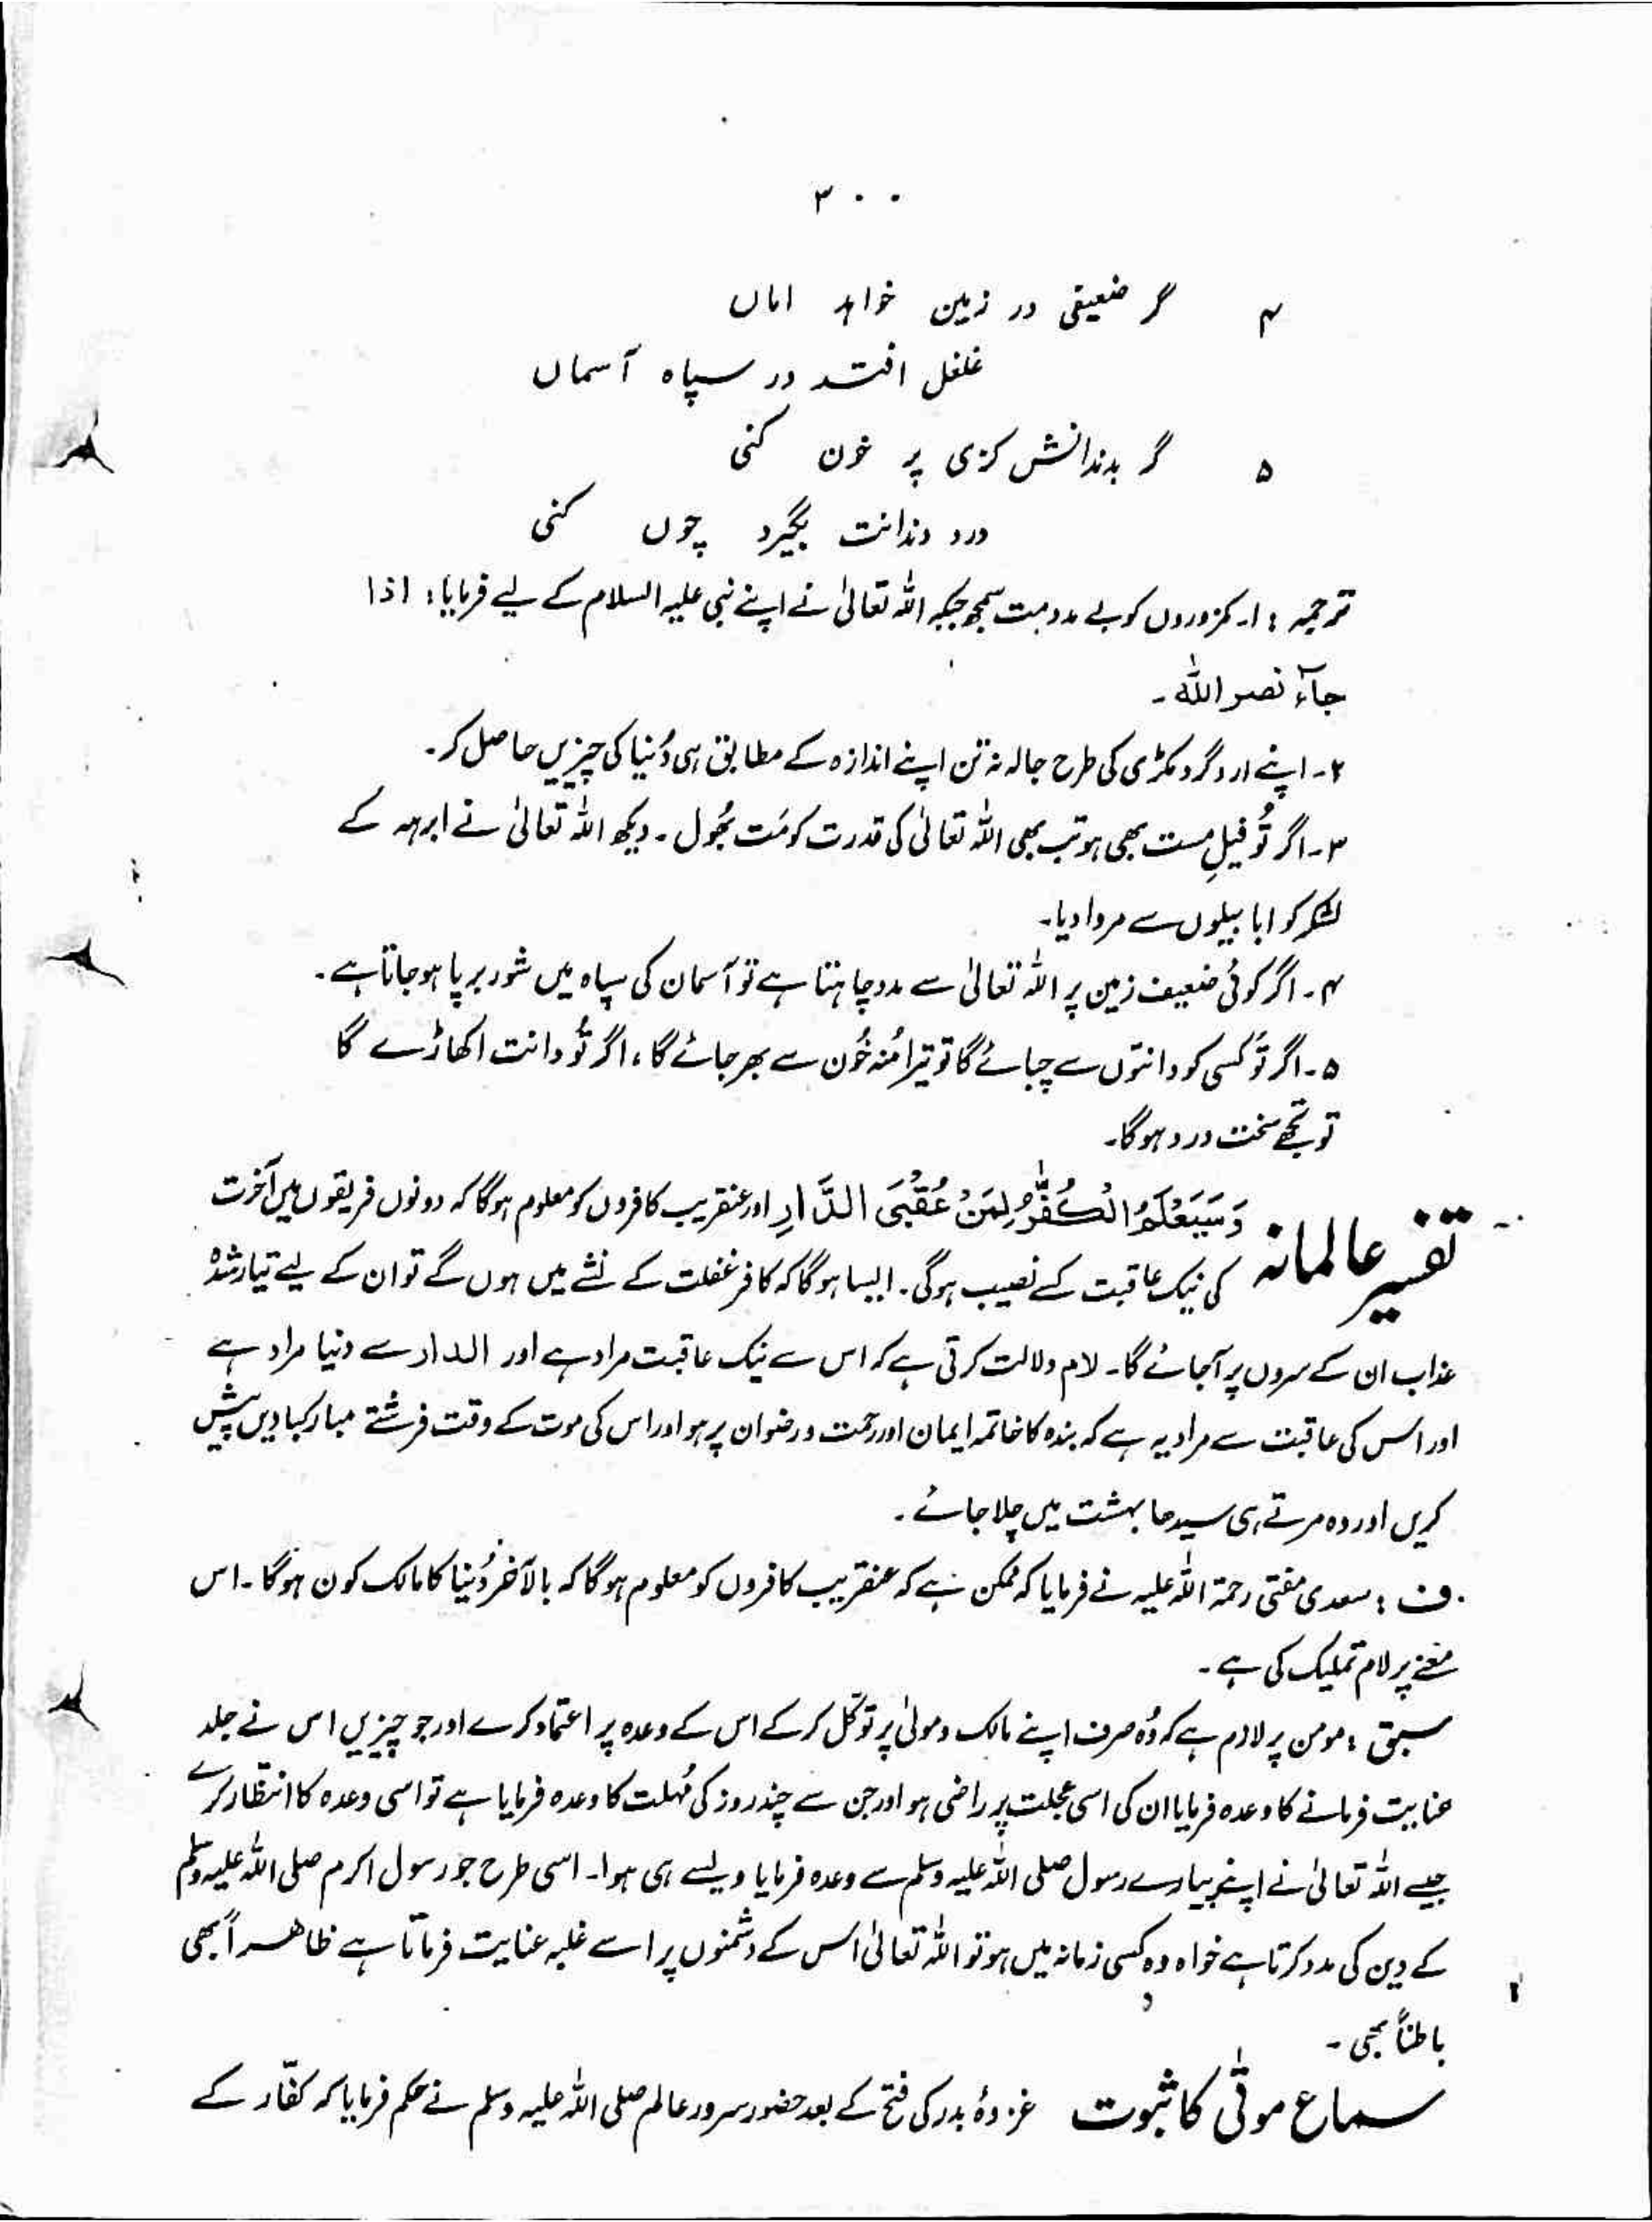 ۳۰۰
۴ گر ضعیفی در زمین خواہد اماں
غلغل افتد در سپاہ آسماں
۵ گر بدندانش گزی پر خون کنی
درد دندانت بگیرد چوں کنی
ترجمہ : ۱۔ کمزوروں کو بے مدد مت سمجھ جبکہ اللہ تعالیٰ نے اپنے نبی علیہ السلام کے لیے فرمایا: اذا
جآء نصر اللہ۔
۲۔ اپنے اردگرد مکڑی کی طرح جالہ نہ تن اپنے اندازہ کے مطابق ہی دُنیا کی چیزیں حاصل کر۔
۳۔ اگر تُو فیلِ مست بھی ہو تب بھی اللہ تعالیٰ کی قدرت کو مَت بھُول۔ دیکھ اللہ تعالیٰ نے ابرہہ کے
لشکر کو ابابیلوں سے مروا دیا۔
۴۔ اگر کوئی ضعیف زمین پر اللہ تعالیٰ سے مدد چاہتا ہے تو آسمان کی سپاہ میں شور برپا ہو جاتا ہے۔
۵۔ اگر تُو کسی کو دانتوں سے چبائے گا تو تیرا مُنہ خُون سے بھر جائے گا، اگر تُو دانت اکھاڑے گا
تو تجھے سخت درد ہوگا۔
تفسیر عالمانہ وَسَيَعْلَمُ الْكُفّٰرُ لِمَنْ عُقْبَى الدَّارِ اور عنقریب کافروں کو معلوم ہوگا کہ دونوں فریقوں میں آخرت
کی نیک عاقبت کے نصیب ہوگی۔ ایسا ہوگا کہ کافر غفلت کے نشے میں ہوں گے تو ان کے لیے تیار شدہ
عذاب ان کے سروں پر آجائے گا۔ لام دلالت کرتی ہے کہ اس سے نیک عاقبت مراد ہے اور الدار سے دنیا مراد ہے
اور اس کی عاقبت سے مراد یہ ہے کہ بندہ کا خاتمہ ایمان اور رحمت و رضوان پر ہو اور اس کی موت کے وقت فرشتے مبارکبادیں پیش
کریں اور وہ مرتے ہی سیدھا بہشت میں چلا جائے۔
ف : سعدی مفتی رحمۃ اللہ علیہ نے فرمایا کہ ممکن ہے کہ عنقریب کافروں کو معلوم ہوگا کہ بالآخر دُنیا کا مالک کون ہوگا۔ اس
معنے پر لام تملیک کی ہے۔
سبق : مومن پر لازم ہے کہ وُہ صرف اپنے مالک و مولیٰ پر توکّل کر کے اس کے وعدہ پر اعتماد کرے اور جو چیزیں اس نے جلد
عنایت فرمانے کا وعدہ فرمایا ان کی اسی عجلت پر راضی ہو اور جن سے چند روز کی مُہلت کا وعدہ فرمایا ہے تو اسی وعدہ کا انتظار کرے
جیسے اللہ تعالیٰ نے اپنے پیارے رسول صلی اللہ علیہ وسلم سے وعدہ فرمایا ویسے ہی ہوا۔ اسی طرح جو رسول اکرم صلی اللہ علیہ وسلم
کے دین کی مدد کرتا ہے خواہ وہ کسی زمانہ میں ہو تو اللہ تعالیٰ اس کے دشمنوں پر اسے غلبہ عنایت فرماتا ہے ظاہراً بھی
باطناً بھی۔
سماع موتٰی کا ثبوت غزوۂ بدر کی فتح کے بعد حضور سرور عالم صلی اللہ علیہ وسلم نے حکم فرمایا کہ کفّار کے